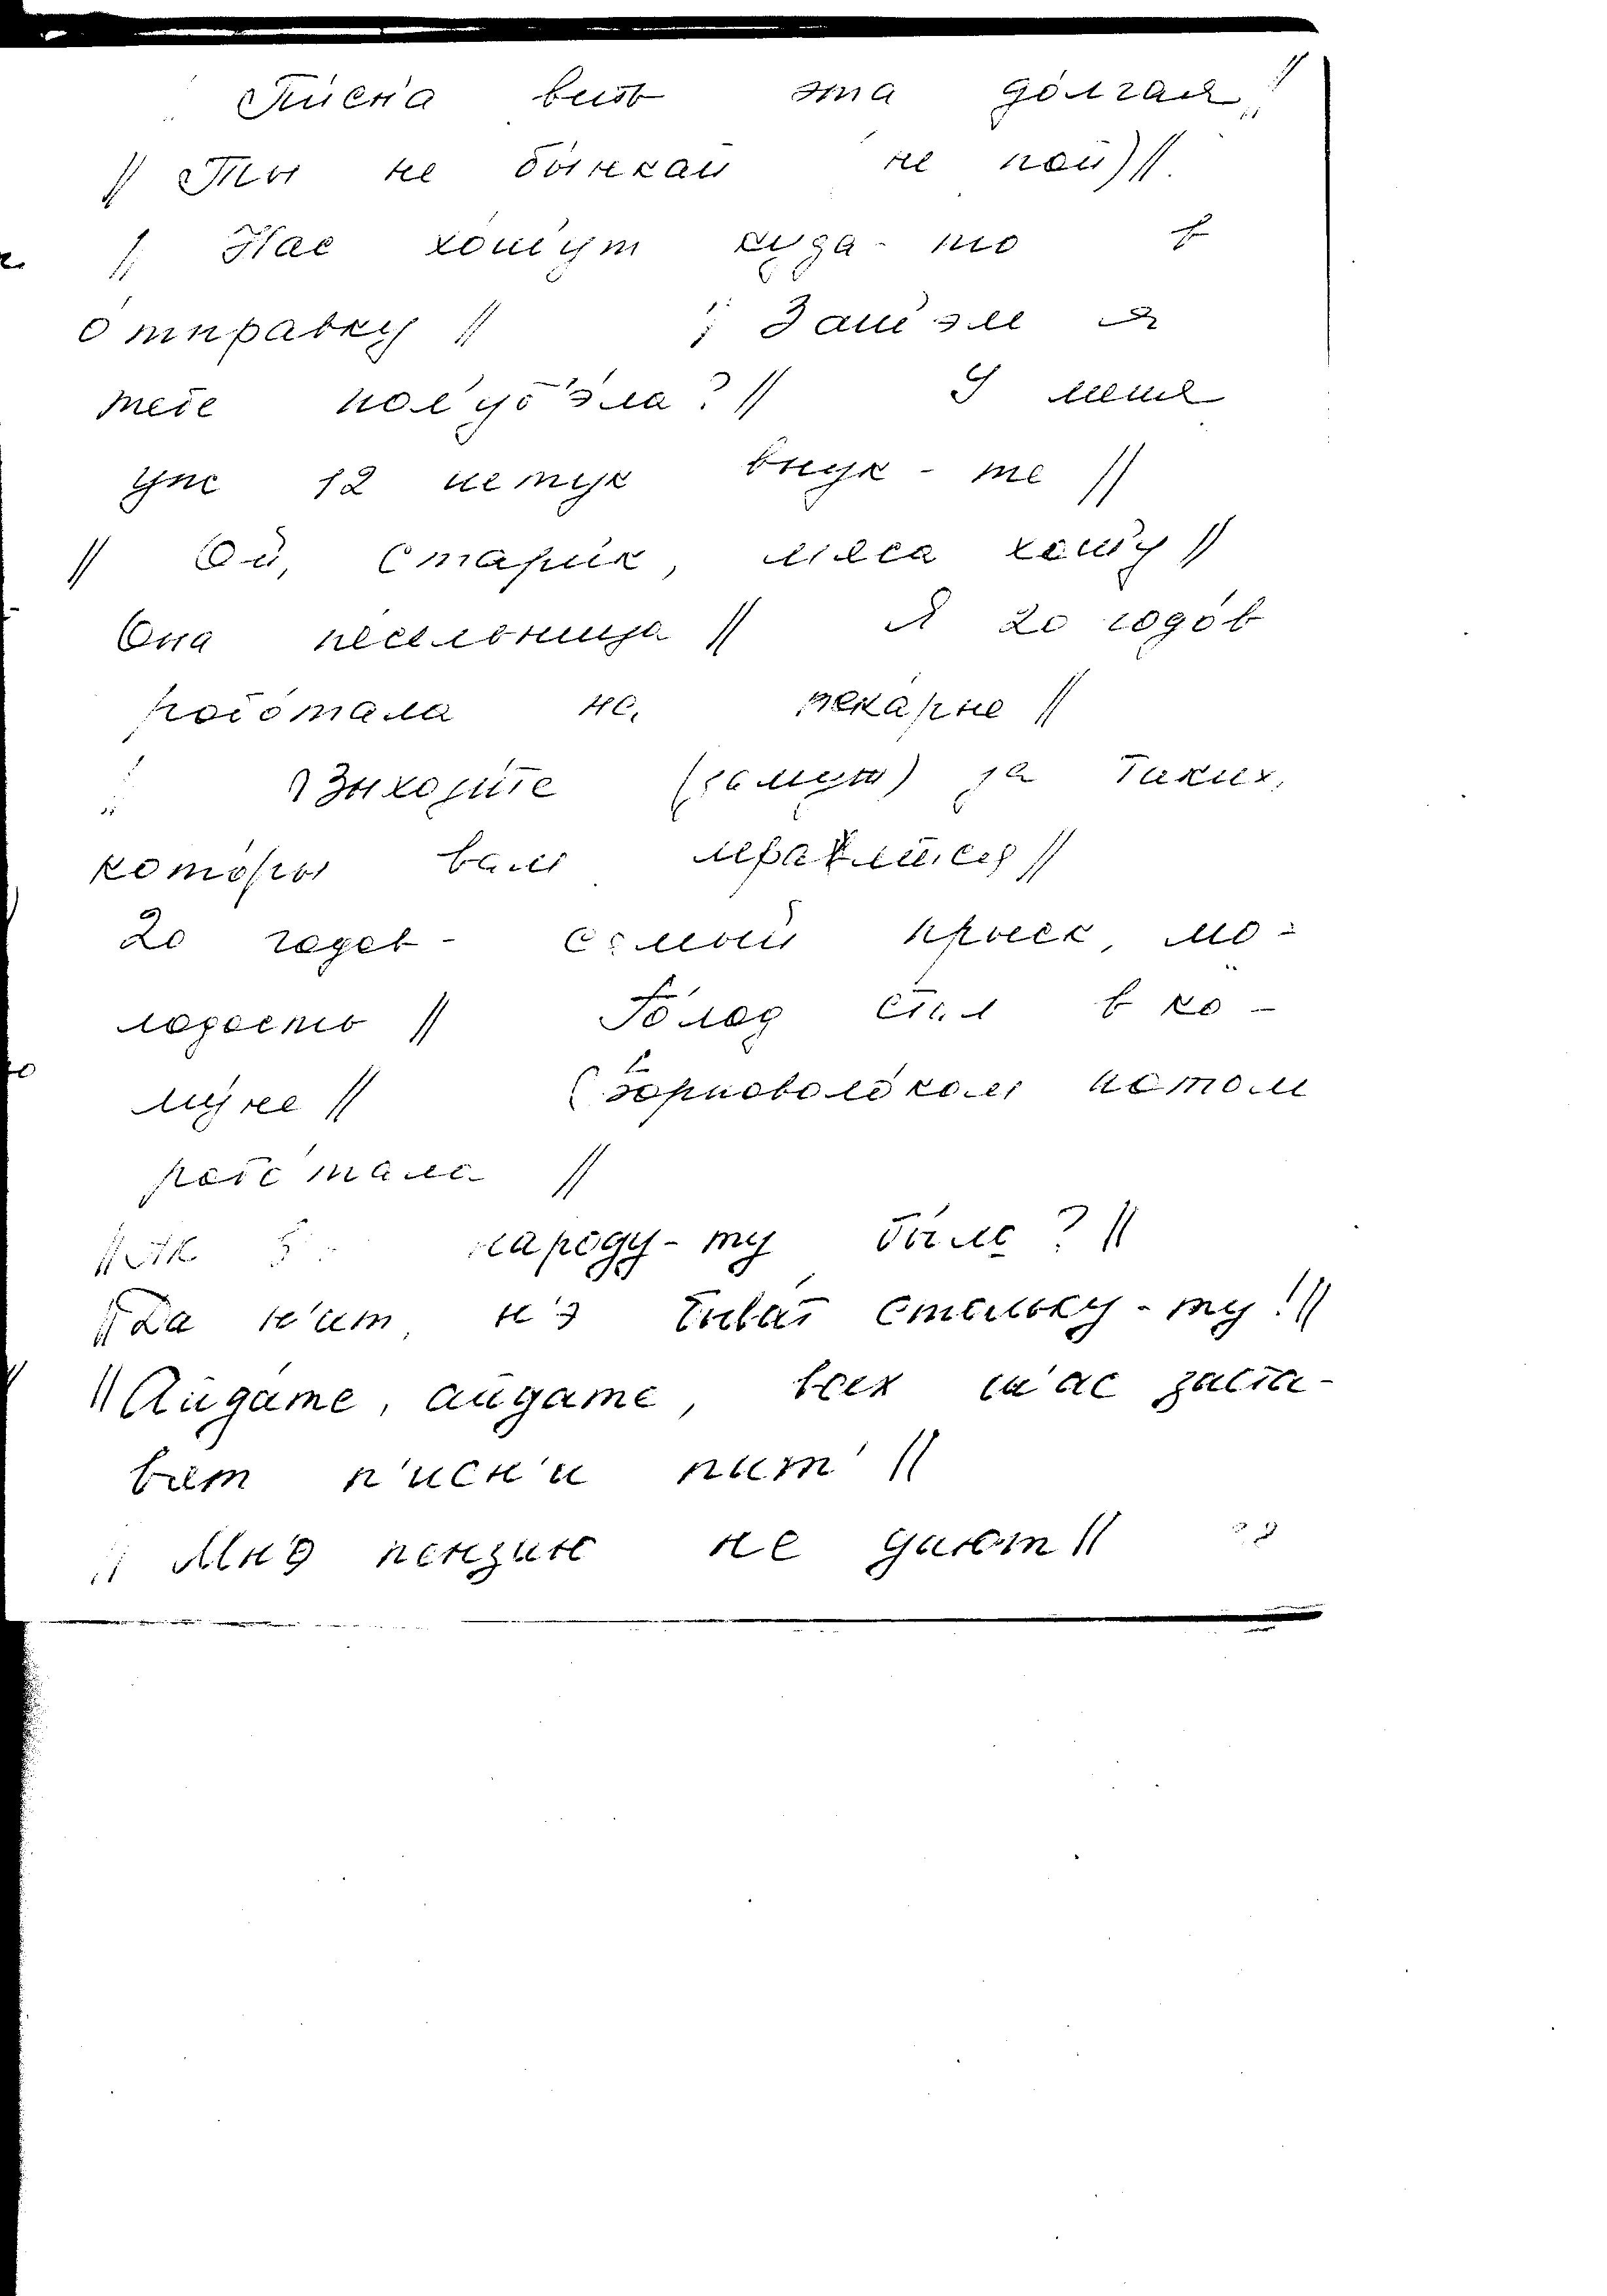 Пи́сн'а вить эта до́лгая //
// Ты не бы́нкай не пой) //.
// Нас хо́ш'ут куда-то в
о́тправку // // Заш'эм я
тебе пос'уб'эла? // У меня
уж 12 штук внук-те //
// Ой, стари́к, мяса хош'у //
Она песельница // Я 20 годо́в
рабо́тала на пека́рне //
// Выходи́те (замуж) за таких,
кото́ры вам мра́вятся //
20 годов - самый прыск, мо-
лодость // Го́лод был в ко-
му́не // потом
рабо́тала //
народу-ту было? //
// Да н'ит, н'э быва́т стольку-ту! //
// Айда́те, айдате, всех ш'ас заста-
вят п'ис'н'и пит' //
// Мн'э пензию не дают //